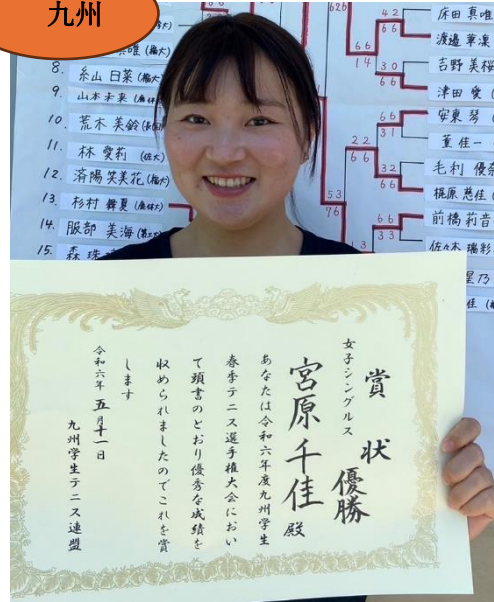 九州
8. 糸山 日菜 (福大)
9. 山本 未来
10. 荒木 美鈴
11. 林 愛莉 (佐大)
12. 済陽 笑美花 (福大)
13. 杉村 舞夏
14. 服部 美海
15. 森
626
53
76
42
66
66
14
30
66
66
31
22
66
32
66
63
13
33
床田 真唯
渡邉 華凜
吉野 美桜
津田 愛
安東 琴
董 佳一
毛利 優奈
梶原 慈佳
前橋 莉音
佐々木 璃彩
賞状
女子シングルス 優勝
宮原 千佳 殿
あなたは令和六年度九州学生
春季テニス選手権大会におい
て頭書のとおり優秀な成績を
収められましたのでこれを賞
します
令和六年 五月十一日
九州学生テニス連盟